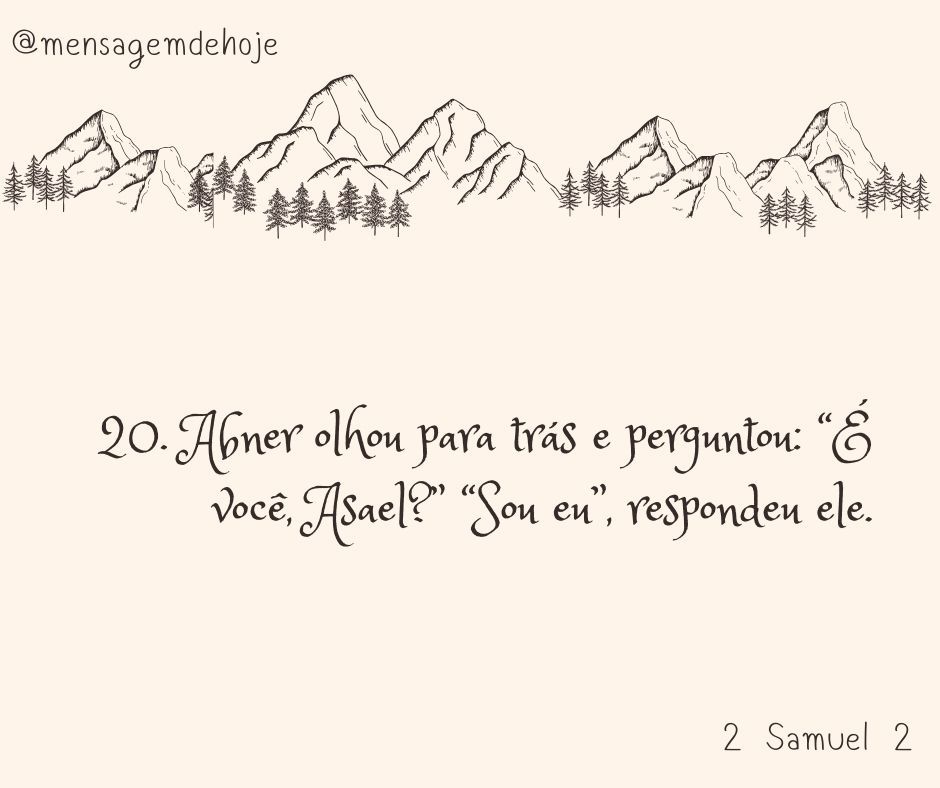 @mensagemdehoje
20. Abner olhou para trás e perguntou: “É
você, Asael?” “Sou eu”, respondeu ele.
2 Samuel 2